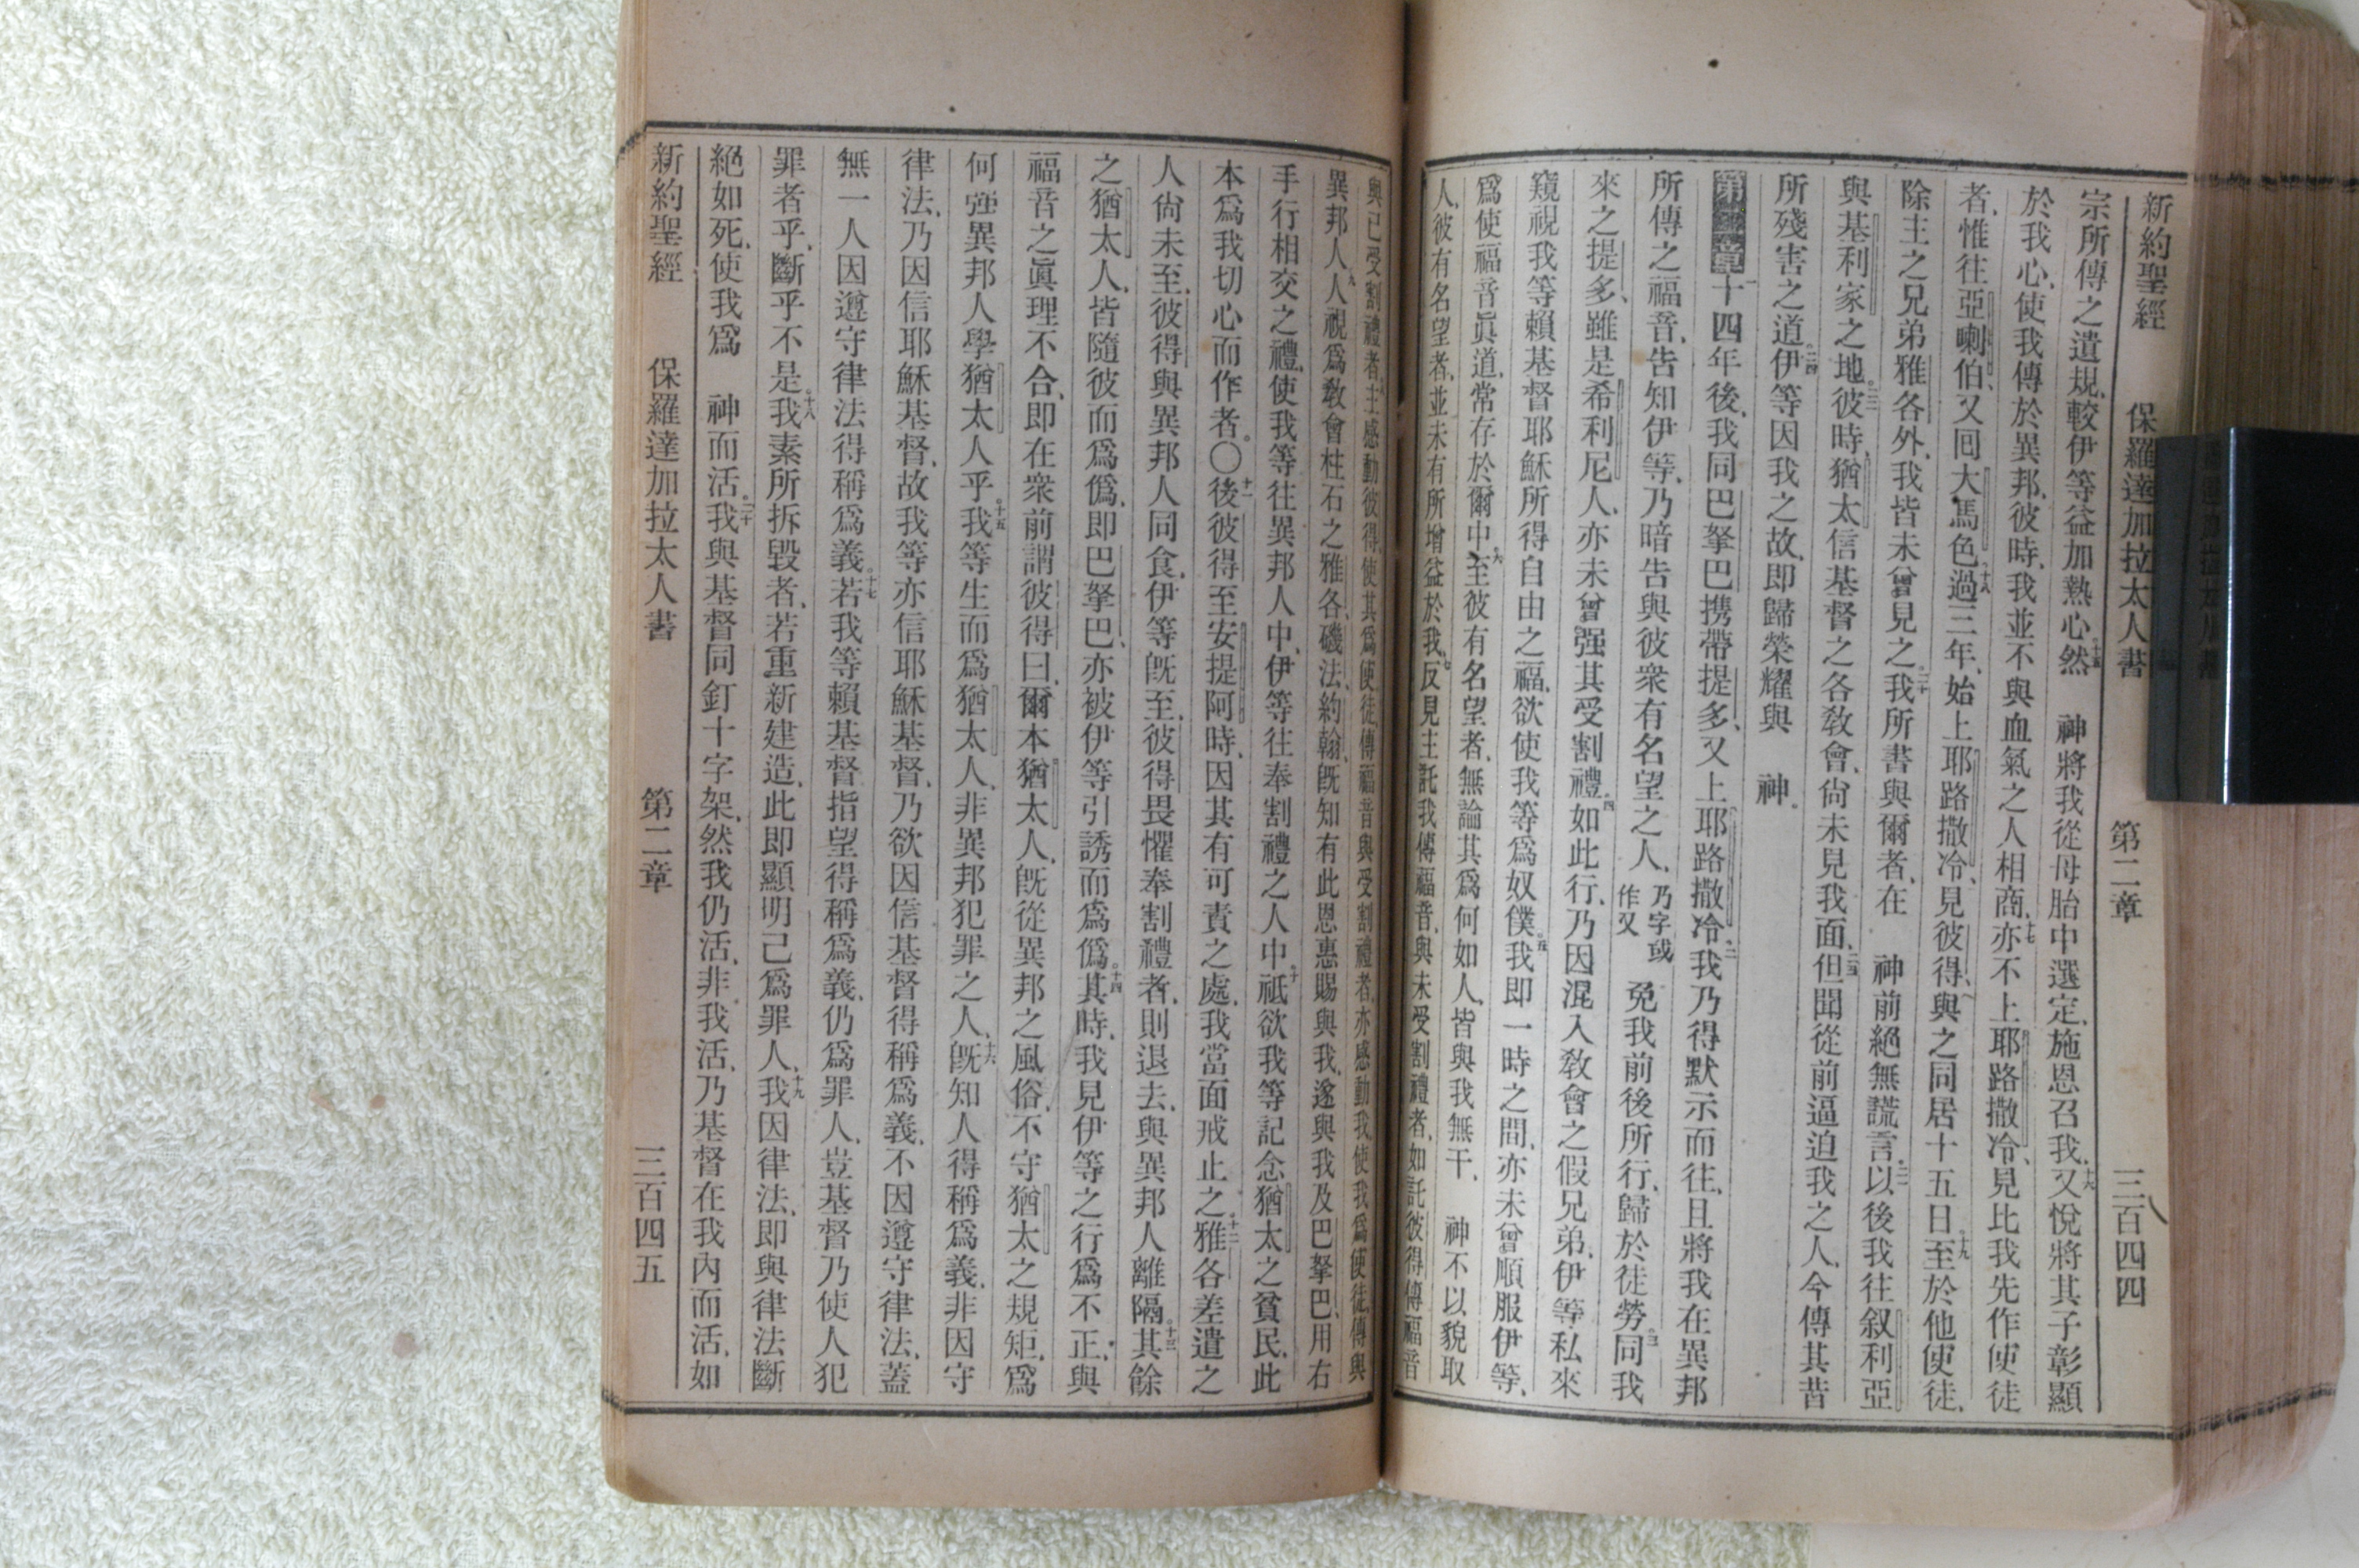 新約聖經　保羅達加拉太人書　第二章　三百四四
宗所傳之遺規、較伊等益加熱心。十五然　神將我從母胎中選定、施恩召我、十六又悅將其子彰顯
於我心、使我傳於異邦、彼時、我並不與血氣之人相商、十七亦不上耶路撒冷、見比我先作使徒
者、惟往亞喇伯、又回大馬色。十八過三年、始上耶路撒冷、見彼得、與之同居十五日。十九至於他使徒、
除主之兄弟雅各外、我皆未曾見之。二十我所書與爾者、在　神前絕無謊言。二一以後我往叙利亞
與基利家之地。二二彼時、猶太信基督之各教會、尙未見我面、二三但聞從前逼迫我之人、今傳其昔
所殘害之道。二四伊等因我之故、即歸榮耀與　神。
第二章一十四年後、我同巴拏巴携帶提多、又上耶路撒冷、二我乃得默示而往、且將我在異邦
所傳之福音、告知伊等、乃暗告與彼衆有名望之人、乃字或作又　免我前後所行、歸於徒勞。三同我
來之提多、雖是希利尼人、亦未曾强其受割禮。四如此行、乃因混入教會之假兄弟、伊等私來
窺視我等賴基督耶穌所得自由之福、欲使我等爲奴僕。五我即一時之間、亦未曾順服伊等、
爲使福音眞道、常存於爾中。六至彼有名望者、無論其爲何如人、皆與我無干、　神不以貌取
人、彼有名望者、並未有所增益於我、七反見主託我傳福音、與未受割禮者、如託彼得傳福音
與已受割禮者、八主感動彼得、使其爲使徒、傳福音與受割禮者、亦感動我、使我爲使徒、傳與
異邦人、九人視爲教會柱石之雅各、磯法、約翰、旣知有此恩惠賜與我、遂與我及巴拏巴、用右
手行相交之禮、使我等往異邦人中、伊等往奉割禮之人中。十祇欲我等記念猶太之貧民、此
本爲我切心而作者。〇十一後彼得至安提阿時、因其有可責之處、我當面戒止之。十二雅各差遣之
人尙未至、彼得與異邦人同食、伊等旣至、彼得畏懼奉割禮者、則退去、與異邦人離隔。十三其餘
之猶太人、皆隨彼而爲僞、即巴拏巴、亦被伊等引誘而爲僞。十四其時、我見伊等之行爲不正、與
福音之眞理不合、即在衆前謂彼得曰、爾本猶太人、旣從異邦之風俗、不守猶太之規矩、爲
何强異邦人學猶太人乎。十五我等生而爲猶太人、非異邦犯罪之人、十六旣知人得稱爲義、非因守
律法、乃因信耶穌基督、故我等亦信耶穌基督、乃欲因信基督得稱爲義、不因遵守律法、蓋
無一人因遵守律法得稱爲義。十七若我等賴基督指望得稱爲義、仍爲罪人、豈基督乃使人犯
罪者乎、斷乎不是。十八我素所拆毀者、若重新建造、此即顯明己爲罪人、十九我因律法、即與律法斷
絕如死、使我爲　神而活。二十我與基督同釘十字架、然我仍活、非我活、乃基督在我內而活、如
新約聖經　保羅達加拉太人書　第二章　三百四五